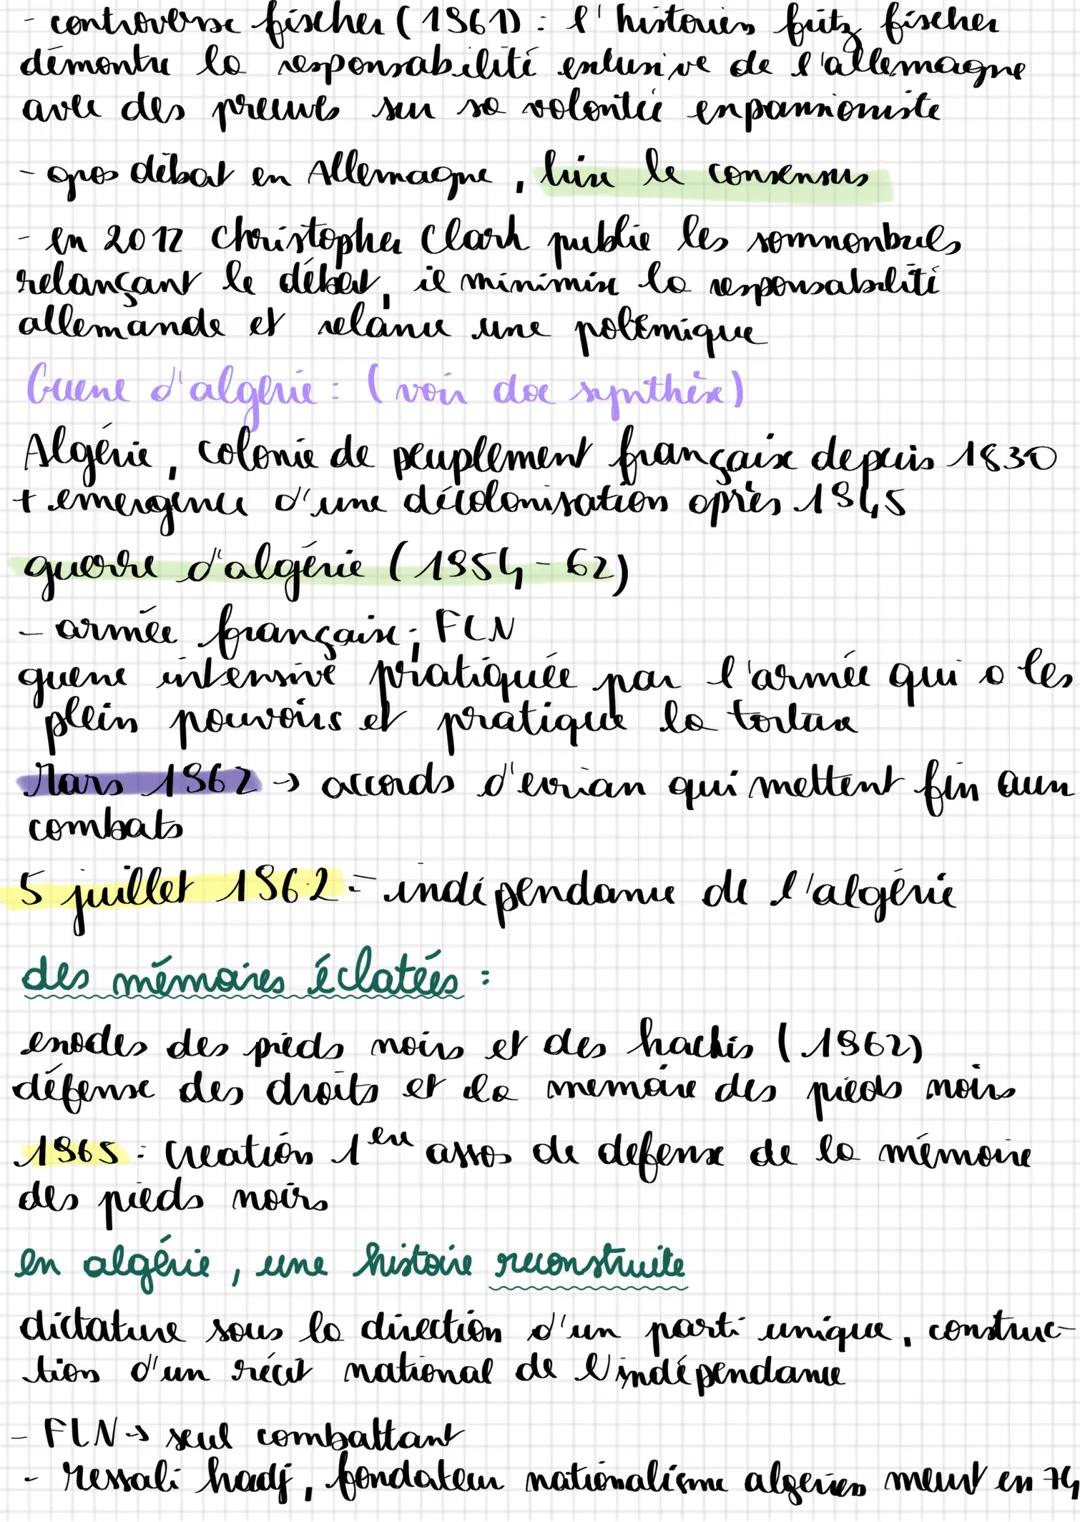 - controverse fischer (1961) : l'historien fritz fischer
démontre la responsabilité exlusive de l'allemagne
avec des preuves sur sa volontée expansioniste
- gros débat en Allemagne, brise le consensus
- en 2012 Christopher Clark publie les somnenbules
relançant le débat, il minimise la responsabilité
allemande et relance une polémique
Guerre d'algérie : (voir doc synthèse)
Algérie, colonie de peuplement française depuis 1830
+ emergence d'une décolonisation après 1945
guerre d'algérie (1954-62)
- armée française ; FLN
guerre intensive pratiquée par l'armée qui a les
plein pouvoirs et pratique la torture
Mars 1962 → accords d'evian qui mettent fin aux
combats
5 juillet 1962 = indépendance de l'algérie
des mémoires éclatées :
exodes des pieds noirs et des harkis (1962)
défense des droits et la memoire des pieds noirs
1965 : Creation 1ere assos de defense de la mémoire
des pieds noirs
en algérie, une histoire reconstruite
dictature sous la direction d'un parti unique, construc-
tion d'un récit national de l'indépendance
- FLN → seul combattant
- messali hadj, fondateur nationalisme algerien meurt en 74